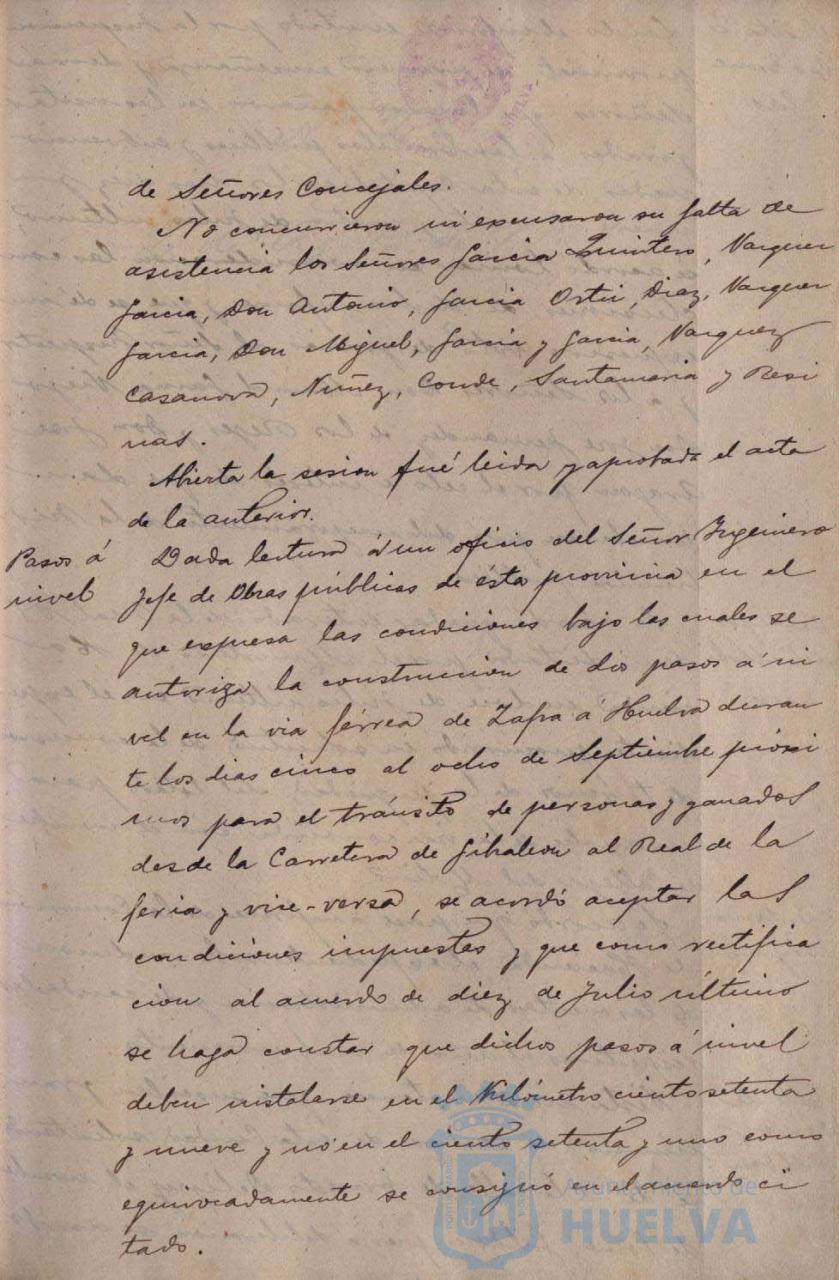 de Señores Concejales.
No concurrieron ni excusaron su falta de
asistencia los Señores Garcia Quintero, Vazquez
Garcia, Don Antonio, Garcia Ortiz, Diaz, Vazquez
Garcia, Don Miguel, Garcia y Garcia, Vazquez
Casanova, Nuñez, Conde, Santamaria y Resi
nas.
Abierta la sesion fué leida y aprobada el acta
de la anterior.
Pasos á
nivel
Dada lectura á un oficio del Señor Ingeniero
Jefe de Obras públicas de ésta provincia en el
que expresa las condiciones bajo las cuales se
autoriza la construccion de dos pasos á ni
vel en la via férrea de Zafra á Huelva duran
te los dias cinco al ocho de Septiembre próxi
mos para el tránsito de personas y ganados
desde la Carretera de Gibraleon al Real de la
feria y vice-versa, se acordó aceptar las
condiciones impuestas y que como rectifica
cion al acuerdo de diez de Julio último
se haga constar que dichos pasos á nivel
deben instalarse en el Kilómetro ciento setenta
y nueve y nó en el ciento setenta y uno como
equivocadamente se consignó en el acuerdo ci
tado.
Ayuntamiento de
HUELVA